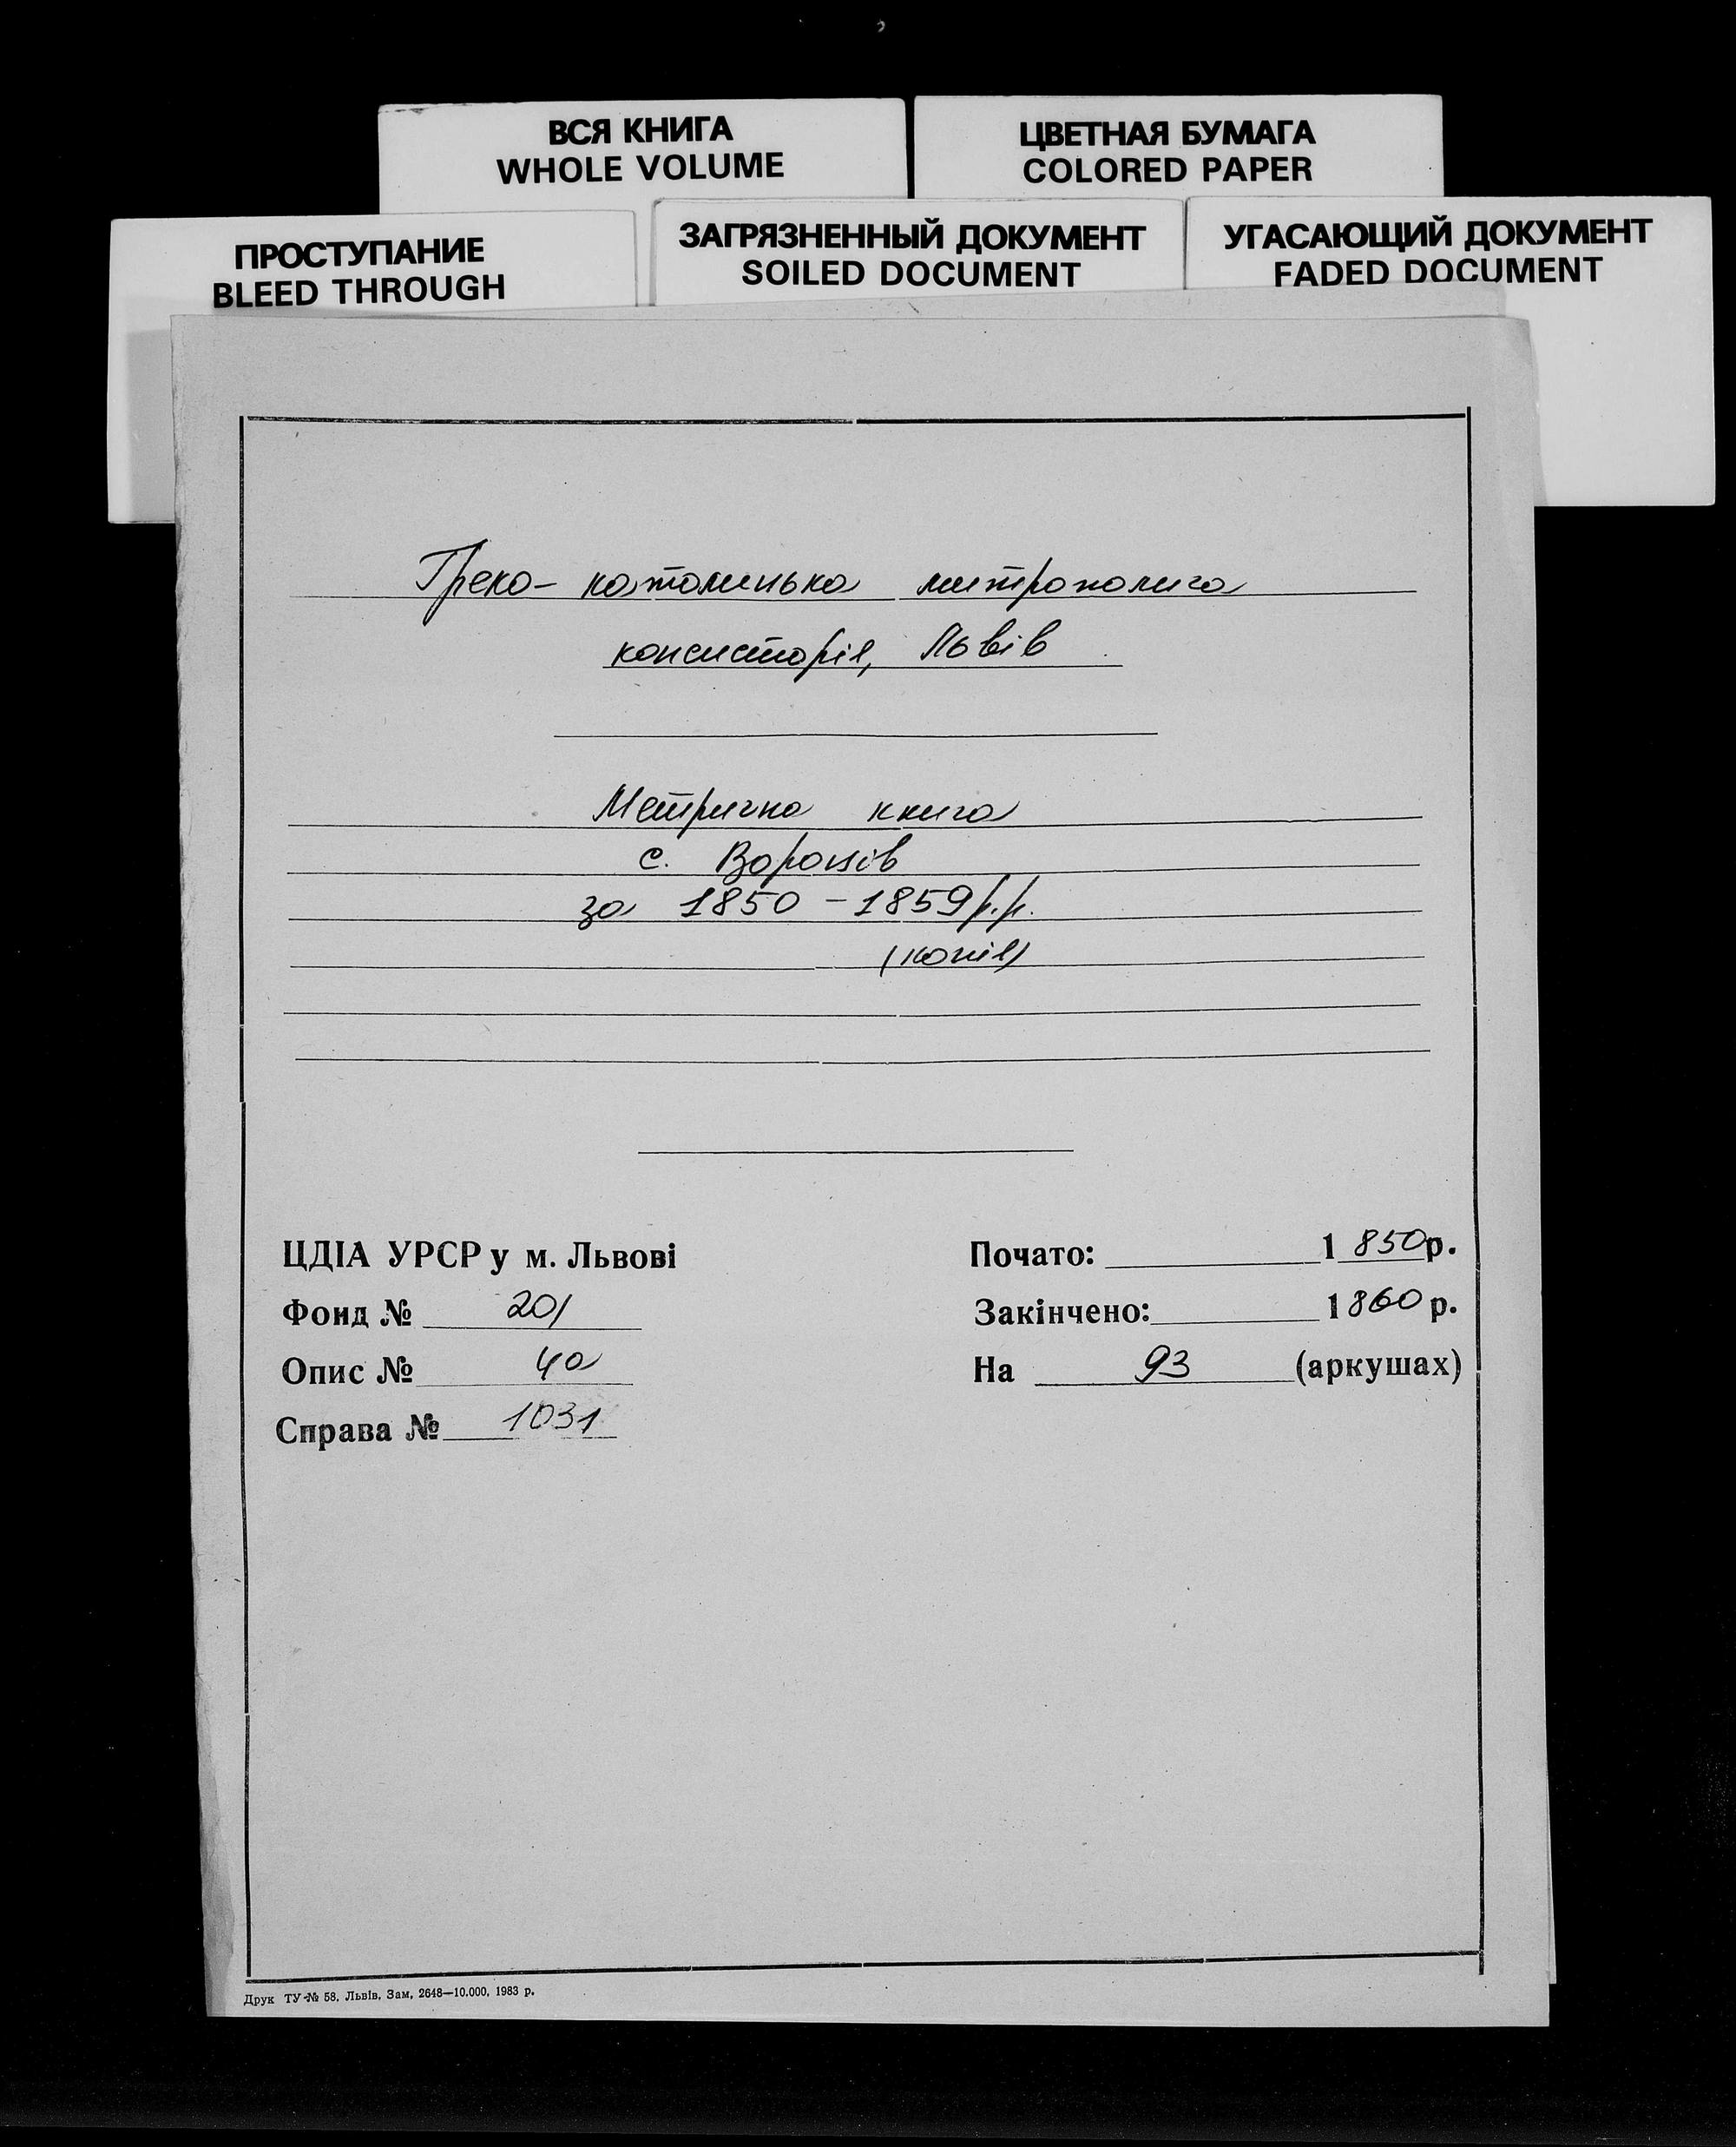 ВСЯ КНИГА
WHOLE VOLUME
ЦВЕТНАЯ БУМАГА
COLORED PAPER
ПРОСТУПАНИЕ
BLEED THROUGH
ЗАГРЯЗНЕННЫЙ ДОКУМЕНТ
SOILED DOCUMENT
УГАСАЮЩИЙ ДОКУМЕНТ
FADED DOCUMENT
Греко-католицька митрополича
консисторія, Львів
Метрична книга
с. Вороців
за 1850-1859 р.р.
(копія)
ЦДІА УРСР у м. Львові
Фонд № 201
Опис № 4а
Справа № 1031
Почато: 1850р.
Закінчено: 1860 р.
На 93 (аркушах)
Друк ТУ-№ 58, Львів, Зам, 2648—10.000, 1983 р.